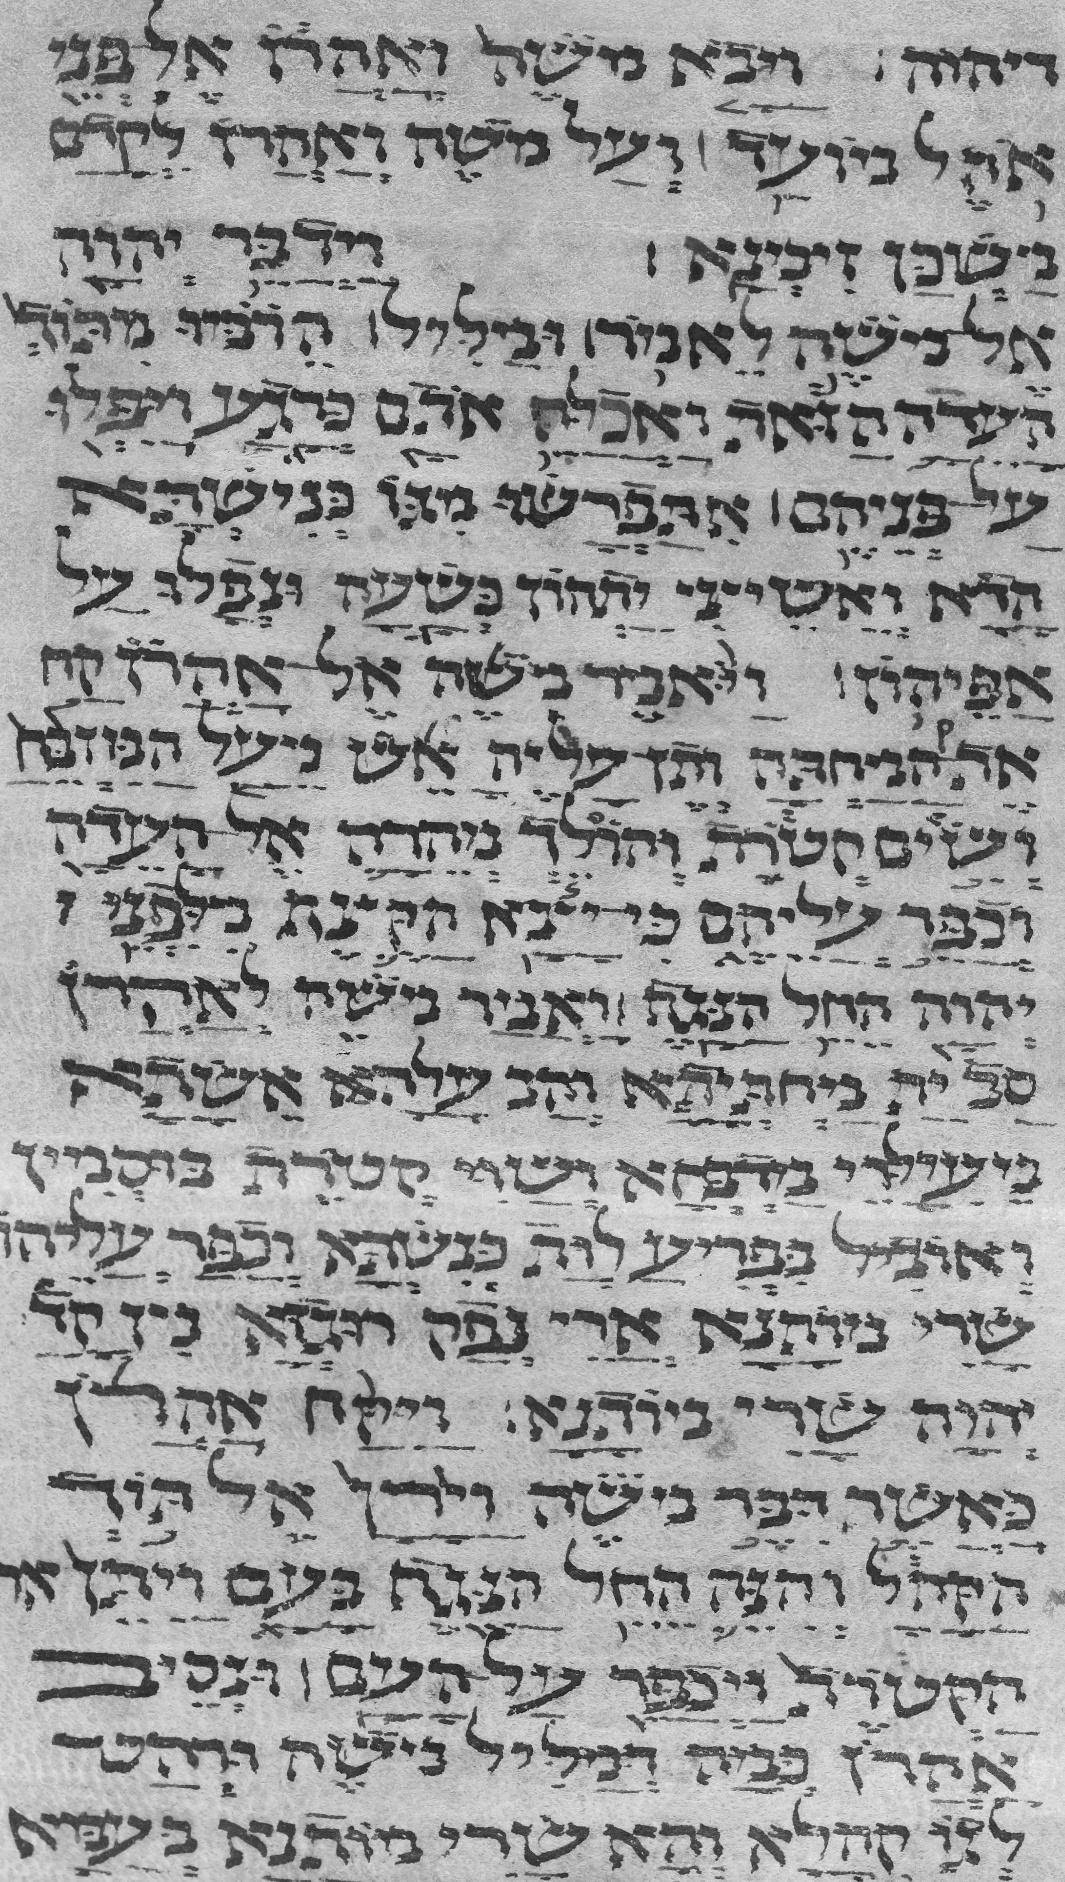 דיהוה׃ ויבא משה ואהרן אל פני
אהל מועד׃ ועל משה ואהרן לקדם
משכן זימנא׃ וידבר יהוה
אל משה לאמר׃ ומליל׃ הרמו מתוך
העדה הזאת ואכלה אתם כרגע ויפלו
על פניהם׃ אתפרשו מגו כנישתא
הדא ואשיצי יתהון כשעה ונפלו על
אפיהון׃ ויאמר משה אל אהרן קח
את המחתה ותן עליה אש מעל המזבח
ושים קטרת והולך מהרה אל העדה
וכפר עליהם כי יצא הקצף מלפני
יהוה החל הנגף׃ ואמר משה לאהרן
סב ית מחתיתא והב עלה אשתא
מעילוי מדבחא ושוי קטרת בוסמין
ואוביל בפריע לות כנשתא וכפר עליהו
שרי מותנא ארי נפק רוגזא מן קד
יהוה שרי מותנא׃ ויקח אהרן
כאשר דבר משה וירץ אל תוך
הקהל והנה החל הנגף בעם ויתן את
הקטרת ויכפר על העם׃ ונסיב
אהרן כמה דמליל משה ורהט
לגו קהלא והא שרי מותנא בעמא